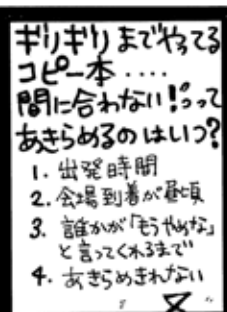 ギリギリまでやってる
コピー本‥‥
間に合わない!!って
あきらめるのはいつ?
1. 出発時間
2. 会場到着が昼頃
3. 誰かが「もうやめな」
と言ってくれるまで
4. あきらめきれない